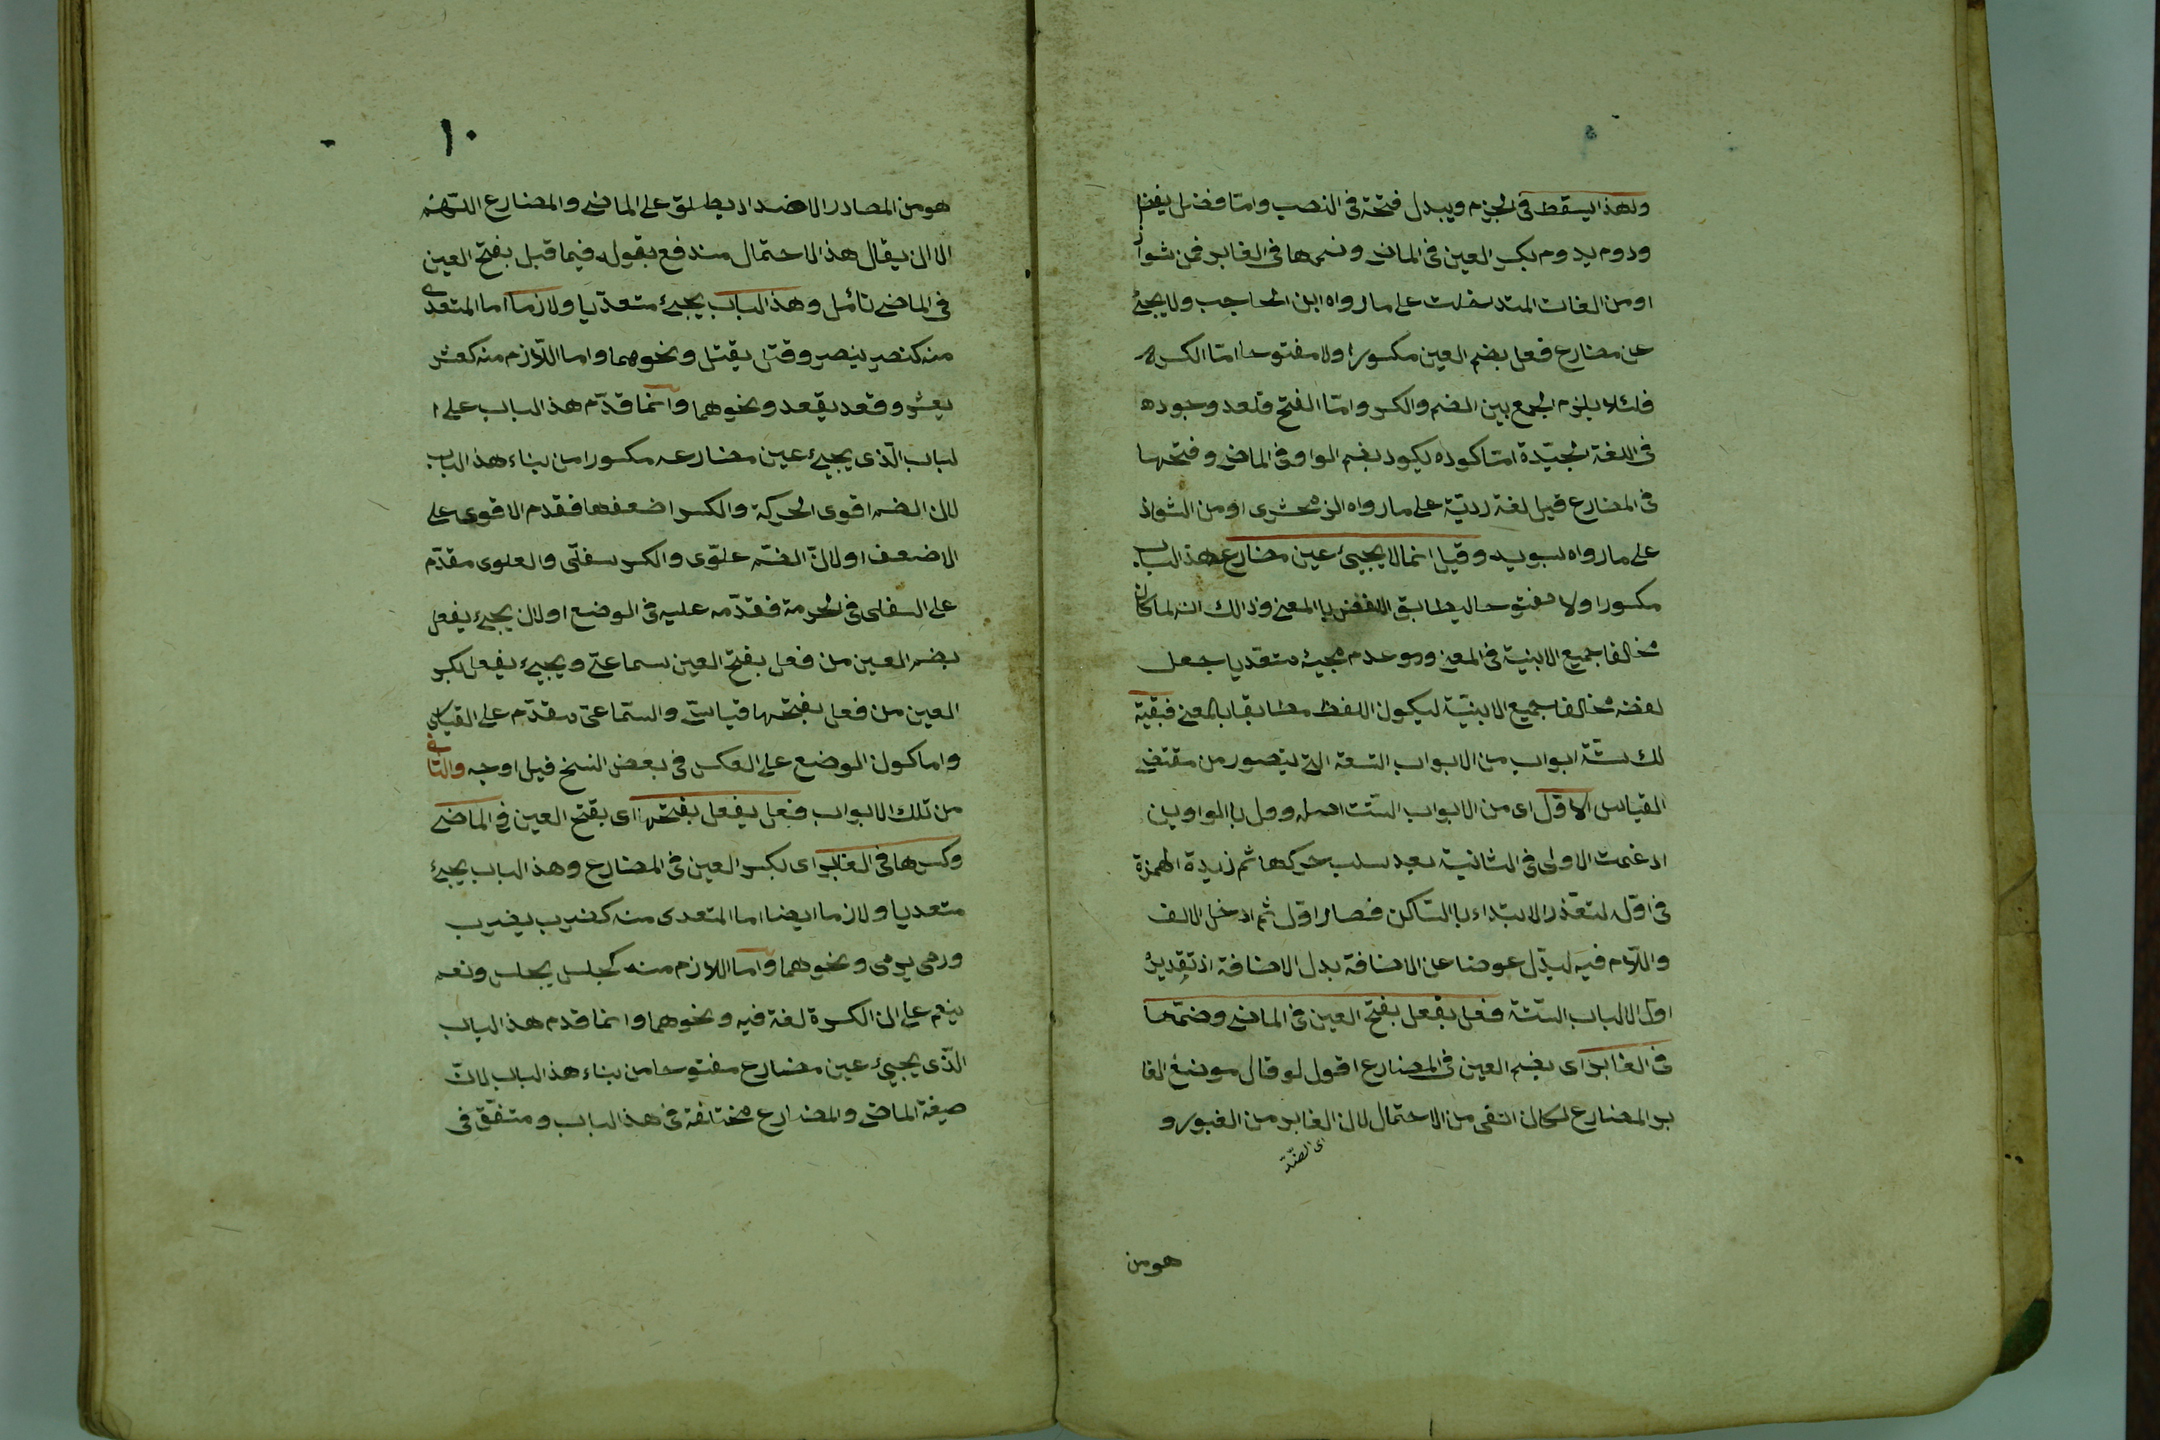 ولهذا يسقط فى الجزم ويبدل فتحة فى النصب واما فضل يفضل
ودوم يدوم بكسر العين فى الماضى وضمها فى الغابر فمن شواذ
او من الغات المتداخلت على ما رواه ابن الحاجب ولا يجئ
عن مضارع فعل بضم العين مكسورا ولا مفتوحا اما الكسرة
فلئلا يلزم الجمع بين الضم والكسر واما الفتح فلعد وجوده
فى اللغة الجيّدة اما كوده يكود بضم الواو فى الماضى وفتحها
فى المضارع قيل لغة رديّة على ما رواه الزمحشرى او من الشواذ
على ما رواه سبويه وقيل انما لا يجيئ عين مضارع هذ الباب
مكسورا ولا مفتوحا ليطابق اللفض بالمعنى وذالك انه لما كان
مخالفا جميع الابنية فى المعنى وهو عدم مجيئه متعديا جعل
لفضه مخالفا جميع الابنيّة ليكون اللفظ مطابقا بالمعنى فبقية
لك ستّة ابواب من الابواب التسعة التى يتصور من مقتضى
القياس الاوّل اى من الابواب الستت اصله وول بالواوين
ادغمت الاولى فى الثانية بعد سلب حركتها ثم زيدة الهمزة
فى اوّله لتعذر الابتداء بالسّاكن فصار اوّل ثم ادخل الالف
واللّام فيه ليدّل عوضا عن الاضافة بدل الاضافة اذ تقديره
اول الالباب الستّة فعل يفعل بفتح العين فى الماضى وضمّها
فى الغابر اى بضم العين فى المضارع اقول لو قال موضع الغا
بر المضارع لكان انقى من الاحتمال لان الغابر من الغبور و
اى الضدّ
هو من
١٠
هو من المصادر الاضداد يطلق على الماضى والمضارع اللّهم
الا ان يقال هذ الاحتمال مندفع بقوله فيما قبل بفتح العين
فى الماضى تائمل وهذ الباب يجيئ متعدّيا ولازما اما المتعدى
منه كنصر ينصر وقتل يقتل ونحوهما واما اللّازم منه كعشر
يعشر وقعد يقعد ونحوهما وانما قدّم هذ الباب على ا
لباب الّذى يجيئ عين مضارعه مكسورا من بناء هذ الباب
لان الضم اقوى الحركة والكسر اضعفها فقدم الاقوى على
الاضعف او لانّ الضمّ علوّى والكسر سفلّى والعلوى مقدّم
على السفلى فى الحرمة فقدّمه عليه فى الوضع او لان يجيئ يفعل
بضم العين من فعل بفتح العين سماعىّ ويجيئ يفعل بكسر
العين من فعل بفتحها قياسىّ والسّماعى مقدّم على القياسى
واما كون الموضع على العكس فى بعض النسخ فيل اوجه والثانى
من تلك الابواب فعل يفعل بفتحها اى بفتح العين فى الماضى
وكسرها فى الغابر اى بكسر العين فى المضارع وهذ الباب يجيئ
متعديا ولازما ايضا اما المتعدى منه كضرب يضرب
ورمى يرمى ونحوهما واما اللازم منه كجلس يجلس ونعم
ينعم على ان الكسرة لغة فيه ونحوهما وانما قدم هذ الباب
الّذى يجيئ عين مضارع مفتوحا من بناء هذ الباب لانّ
صيغة الماضى والمضارع مختلفة فى هذ الباب ومتفّق فى